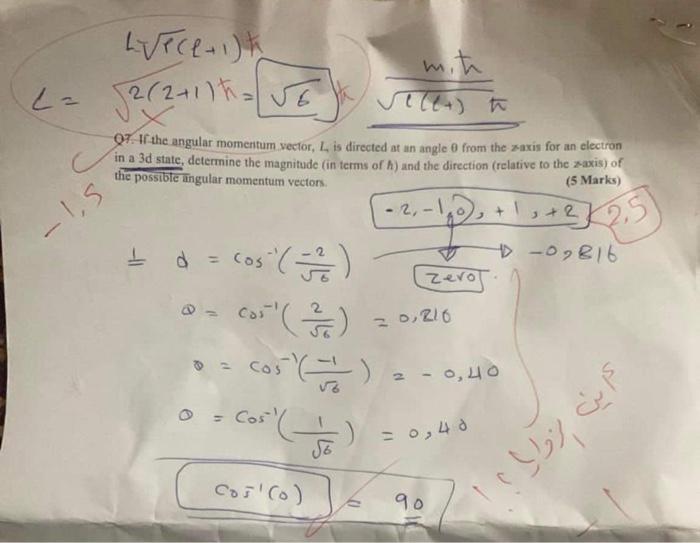 L √ℓ(ℓ+1) ħ
L = √2(2+1) ħ = √6 ħ
mₗħ / √ℓ(ℓ+1) ħ
Q7. If the angular momentum vector, L, is directed at an angle θ from the z-axis for an electron
in a 3d state, determine the magnitude (in terms of ħ) and the direction (relative to the z-axis) of
the possible angular momentum vectors. (5 Marks)
-1,5
-2, -1, 0, +1, +2
2,5
θ = cos⁻¹(-2/√6) → -0,816
zero
θ = cos⁻¹(2/√6) = 0,816
θ = cos⁻¹(-1/√6) = -0,40
θ = cos⁻¹(1/√6) = 0,40
أين الزوايا؟؟
cos⁻¹(0) = 90
-1